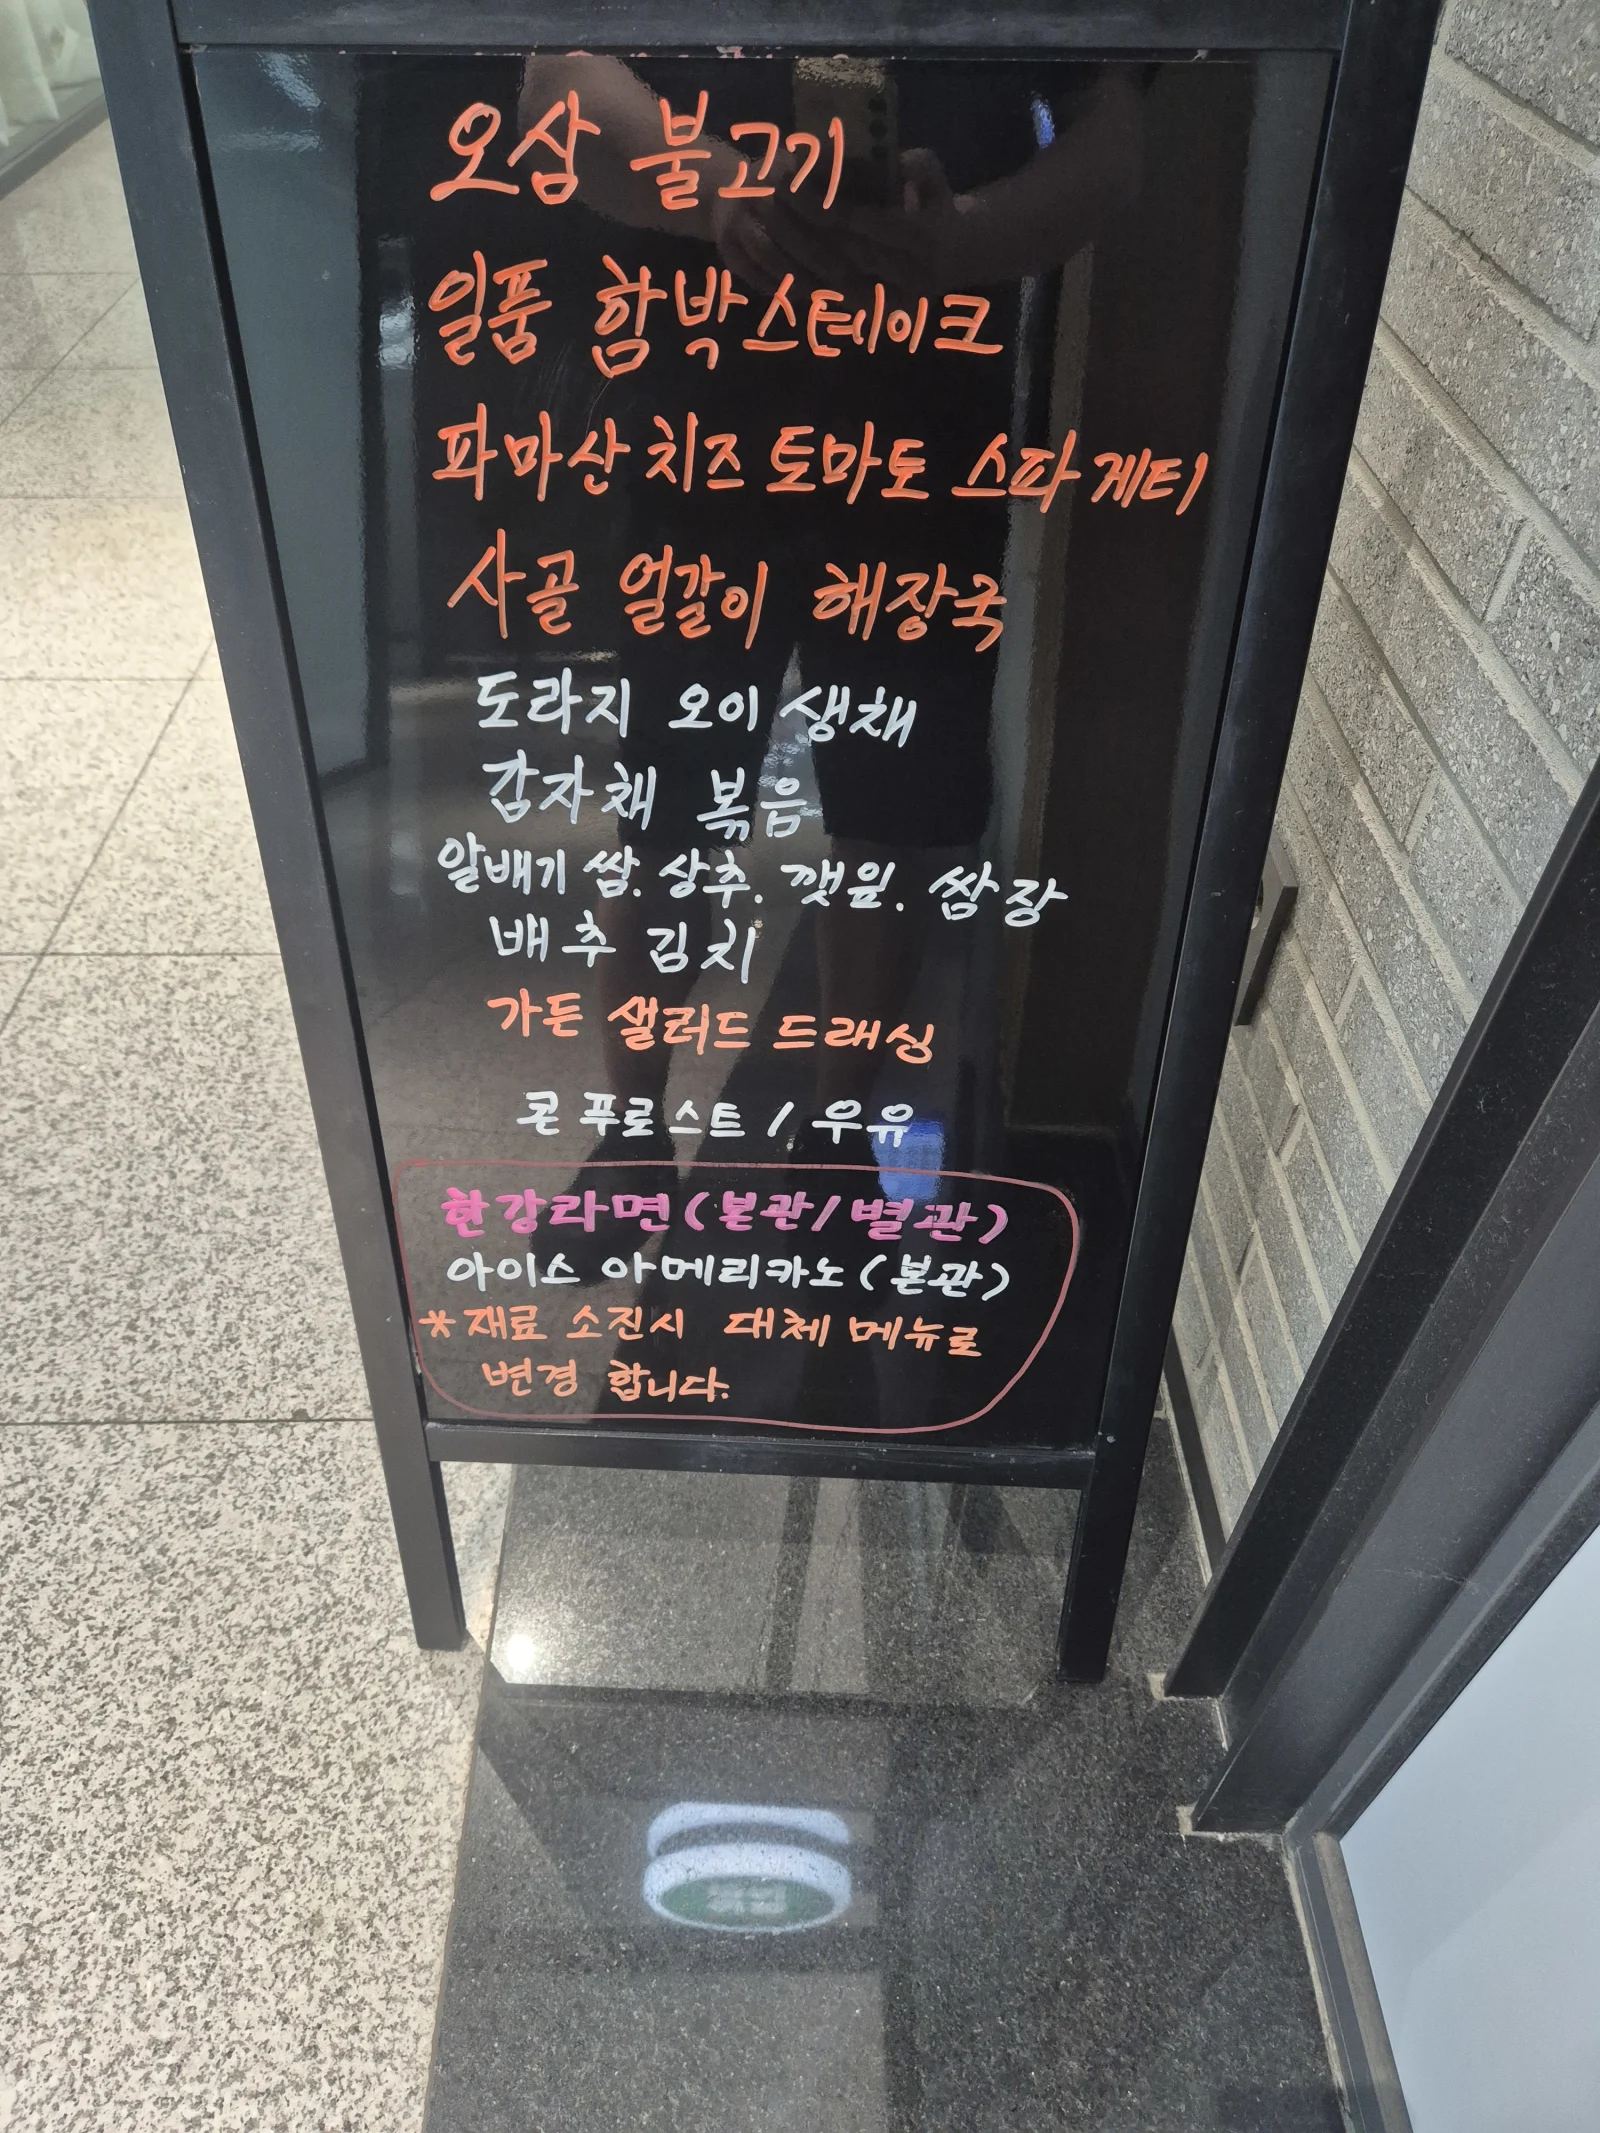 오삼 불고기
일품 함박스테이크
파마산 치즈 토마토 스파게티
사골 얼갈이 해장국
도라지 오이 생채
감자채 볶음
알배기 쌈. 상추. 깻잎. 쌈장
배추 김치
가든 샐러드 드래싱
콘 푸로스트 / 우유
한강라면 (본관/별관)
아이스 아메리카노 (본관)
* 재료 소진시 대체 메뉴로
변경 합니다.